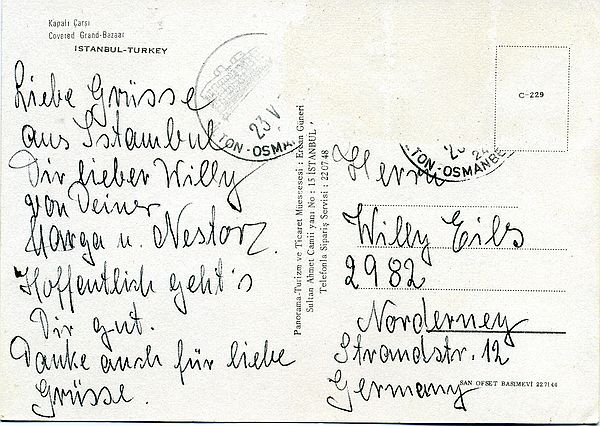 Kapalı Çarşı
Covered Grand-Bazaar
İSTANBUL-TURKEY
Liebe Grüsse
aus Istambul
Dir lieber Willy
von Deiner
Marga u. Nestor.
Hoffentlich geht's
Dir gut.
Danke auch für liebe
Grüsse.
23 V
TON-OSMAN
Panorama-Turizm ve Ticaret Müessesesi : Erkan Güneri
Sultan Ahmet Camii yanı No : 15 İSTANBUL
Telefonla Sipariş Servisi : 220748
C-229
TON-OSMANBE
Herrn
Willy Eils
2982
Norderney
Strandstr. 12
Germany
SAN OFSET BASIMEVİ 227144